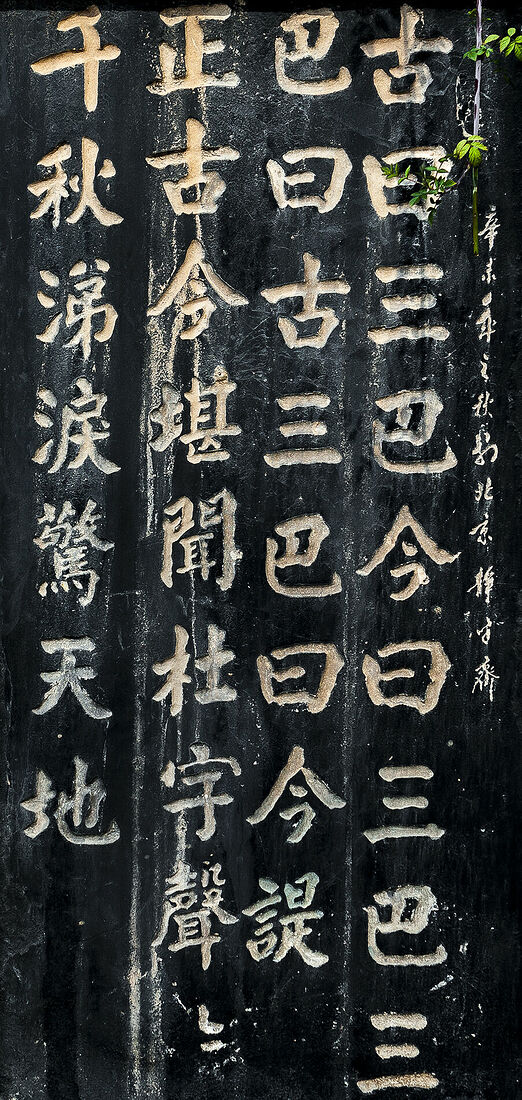 辛未年之秋 北京
古曰三巴今曰三巴三
巴曰古三巴曰今諟
正古今堪聞杜宇聲〻
千秋涕淚驚天地